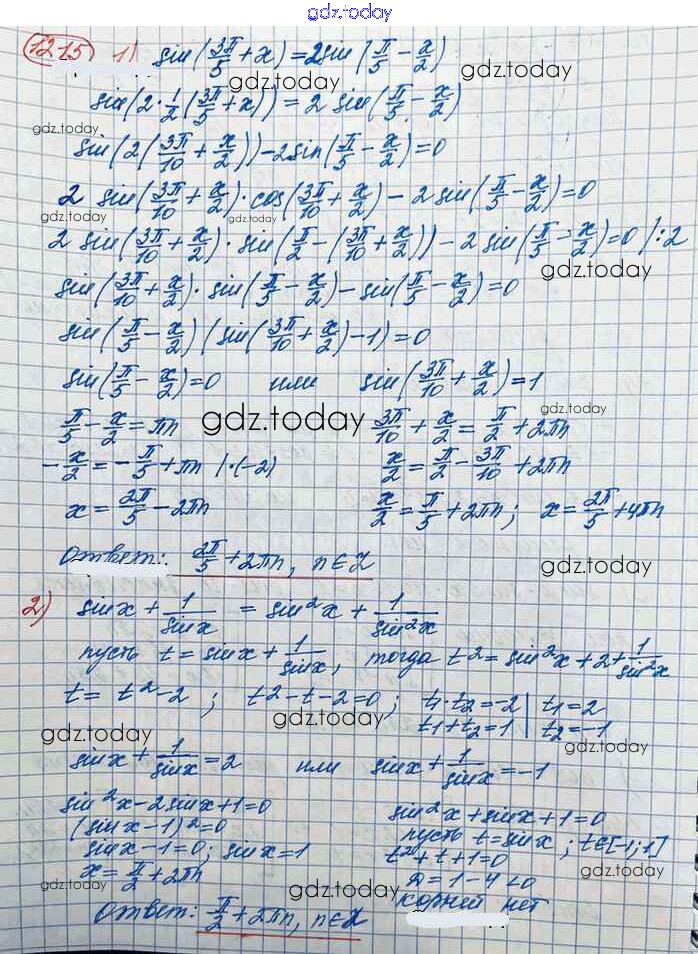 gdz.today
1215 1) sin(3π/5 + x) = 2sin(π/5 − x/2)
gdz.today
sin(2·1/2(3π/5 + x)) = 2 sin(π/5 − x/2)
gdz.today
sin(2(3π/10 + x/2)) − 2sin(π/5 − x/2) = 0
gdz.today
2 sin(3π/10 + x/2)·cos(3π/10 + x/2) − 2 sin(π/5 − x/2) = 0
gdz.today
2 sin(3π/10 + x/2)·sin(π/2 − (3π/10 + x/2)) − 2 sin(π/5 − x/2) = 0 /:2
gdz.today
sin(3π/10 + x/2)·sin(π/5 − x/2) − sin(π/5 − x/2) = 0
sin(π/5 − x/2)(sin(3π/10 + x/2) − 1) = 0
sin(π/5 − x/2) = 0 или sin(3π/10 + x/2) = 1
gdz.today
π/5 − x/2 = πn 3π/10 + x/2 = π/2 + 2πn
gdz.today
−x/2 = −π/5 + πn /·(−2) x/2 = π/2 − 3π/10 + 2πn
x = 2π/5 − 2πn x/2 = π/5 + 2πn; x = 2π/5 + 4πn
gdz.today
Ответ: 2π/5 + 2πn, n∈Z
gdz.today
2) sinx + 1/sinx = sin²x + 1/sin²x
gdz.today
пусть t = sinx + 1/sinx, тогда t² = sin²x + 2 + 1/sin²x
t = t² − 2; t² − t − 2 = 0; t₁·t₂ = −2 | t₁ = 2
gdz.today
t₁ + t₂ = 1 | t₂ = −1
gdz.today
gdz.today
sinx + 1/sinx = 2 или sinx + 1/sinx = −1
sin²x − 2sinx + 1 = 0 sin²x + sinx + 1 = 0
gdz.today
(sinx − 1)² = 0 пусть t = sinx; t∈[−1;1]
sinx − 1 = 0; sinx = 1 t² + t + 1 = 0
x = π/2 + 2πn D = 1 − 4 < 0
gdz.today
gdz.today
gdz.today
корней нет
Ответ: π/2 + 2πn, n∈Z